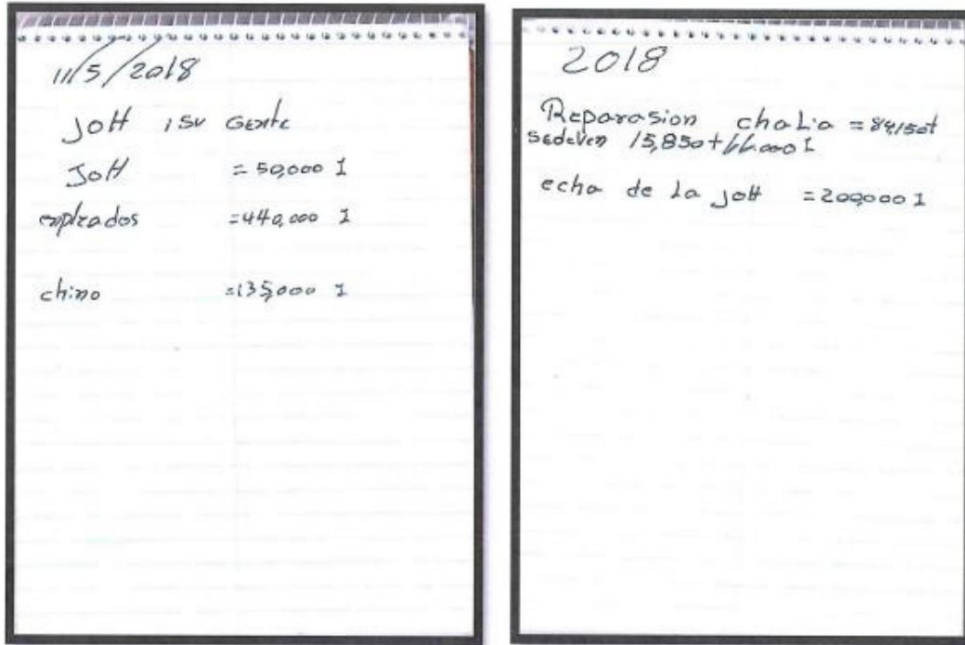 11/5/2018
JOH iSU Gente
JOH =50,000 I
empleados =440,000 I
chino =135,000 I
2018
Reparasion chaLio =84,150t
sedeven 15,850t
echa de La JOH =200,000 I